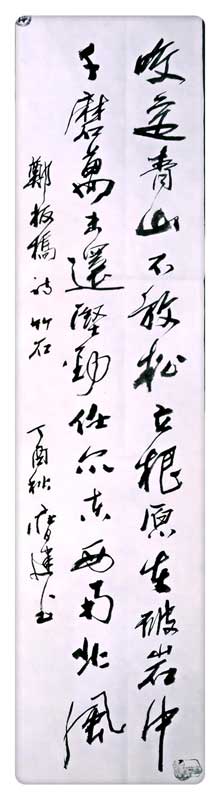 咬定青山不放松立根原在破岩中
千磨萬击還堅勁任尔东西南北風
鄭板橋詩竹石 丁酉秋建书